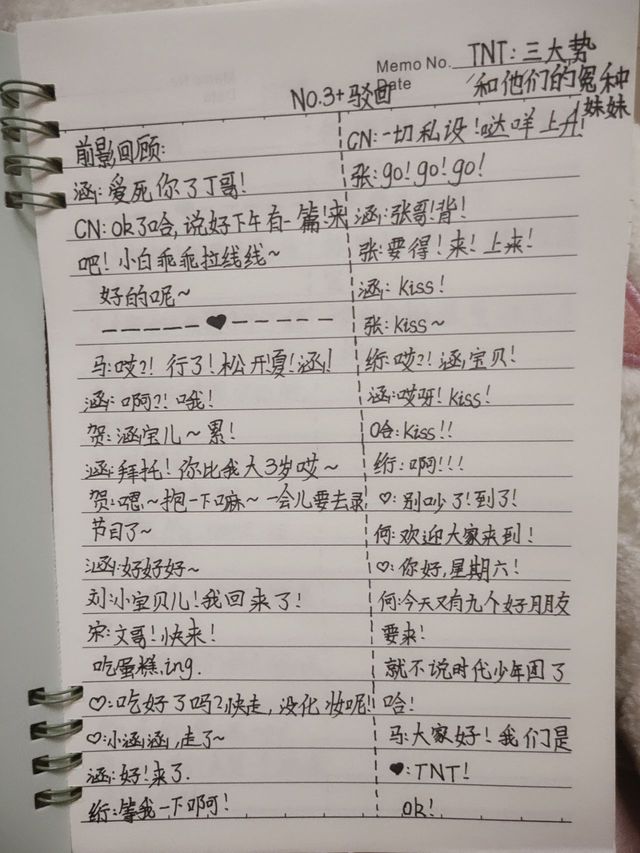 Memo No. TNT:三大势
Date
和他们的冤种
妹妹
NO.3+驳回
前景回顾:
涵:爱死你了丁哥!
CN:ok了哈,说好下午有一篇!来
吧!小白乖乖拉线线~
好的呢~
马:哎?!行了!松开夏!涵!
涵:啊?!哦!
贺:涵宝儿~累!
涵:拜托!你比我大3岁哎~
贺:嗯~抱一下嘛~一会儿要去录
节目了~
涵:好好好~
刘:小宝贝儿!我回来了!
宋:文哥!快来!
吃蛋糕ing.
♡:吃好了吗?快走,没化妆呢!
♡:小涵涵,走了~
涵:好!来了.
绗:等我一下啊!
CN:一切私设!哒咩上升!
张:go!go!go!
涵:张哥!背!
张:要得!来!上来!
涵:kiss!
张:kiss~
绗:哎?!涵宝贝!
涵:哎呀!kiss!
哈:kiss!!
绗:啊!!!
♡:别吵了!到了!
何:欢迎大家来到!
♡:你好,星期六!
何:今天又有九个好朋友
要来!
就不说时代少年团了
哈!
马:大家好!我们是
♥:TNT!
ok!